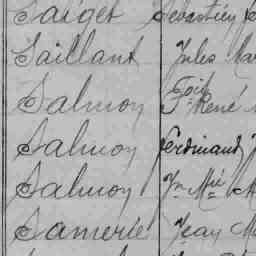 Saiget Sébastien
Saillant Jules Mar
Salmon Fois René
Salmon Ferdinand J
Salmon Jn Mie M
Samerie Jean M